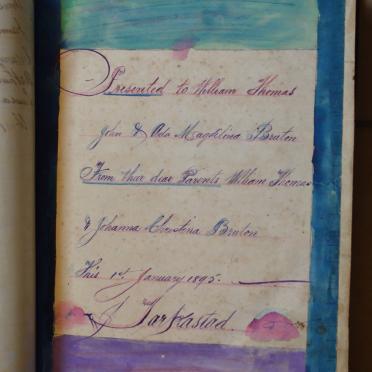 Presented to William Thomas
John & Oda Magdelina Bruton
From their dear Parents William Thomas
& Johanna Christina Bruton
This 1st January 1895.
Tarkastad.